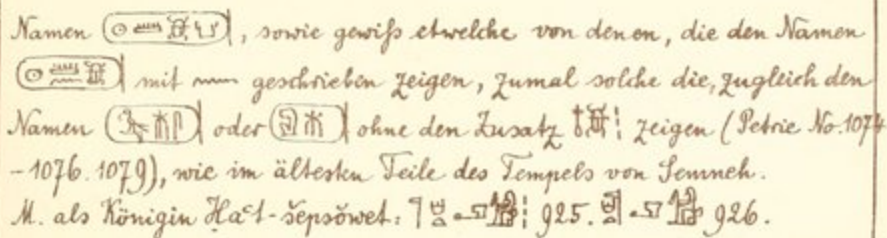 Namen , sowie gewiß etwelche von denen, die den Namen
mit 𓈖 geschrieben zeigen, zumal solche die, zugleich den
Namen oder ohne den Zusatz zeigen (Petrie No. 1074
-1076. 1079), wie im ältesten Teile des Tempels von Semneh.
M. als Königin Ḥaᶜt-šepsōwet: 925. 926.